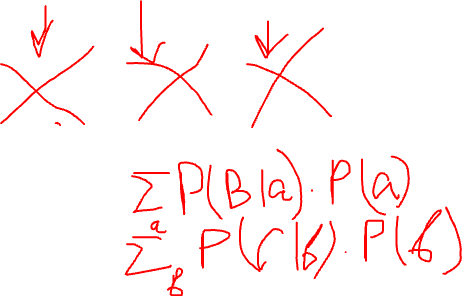 ∑_a P(B|a)·P(a)
∑_b P(r|b)·P(b)